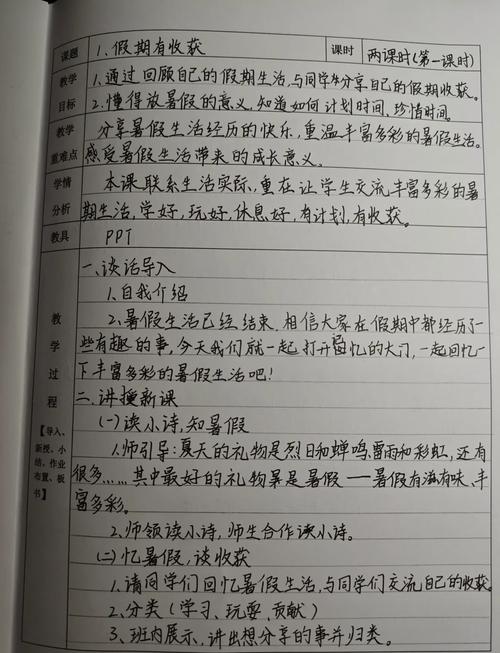 课题 1.假期有收获 课时 两课时(第一课时)
教学目标 1.通过回顾自己的假期生活,与同学分享自己的假期收获。
2.懂得放暑假的意义,知道如何计划时间、珍惜时间。
教学重难点 分享暑假生活经历的快乐,重温丰富多彩的暑假生活。
感受暑假生活带来的成长意义。
学情分析 本课联系生活实际,重在让学生交流丰富多彩的暑
期生活,学好,玩好,休息好,有计划,有收获。
教具 PPT
教学过程
【导入、新授、小结、作业布置、板书】
一、谈话导入
1.自我介绍
2.暑假生活已经结束,相信大家在假期中都经历了一
些有趣的事,今天我们就一起打开回忆的大门,一起回忆一
下丰富多彩的暑假生活吧!
二、讲授新课
(一)读小诗,知暑假
1.师引导:夏天的礼物是烈日和蝉鸣,雷雨和彩虹,还有
很多……其中最好的礼物算是暑假——暑假有滋有味、丰
富多彩。
2.师领读小诗,师生合作读小诗。
(二)忆暑假,谈收获
1.请同学们回忆暑假生活,与同学们交流自己的收获。
2.分类(学习、玩耍、贡献)
3.班内展示,讲出想分享的事并归类。